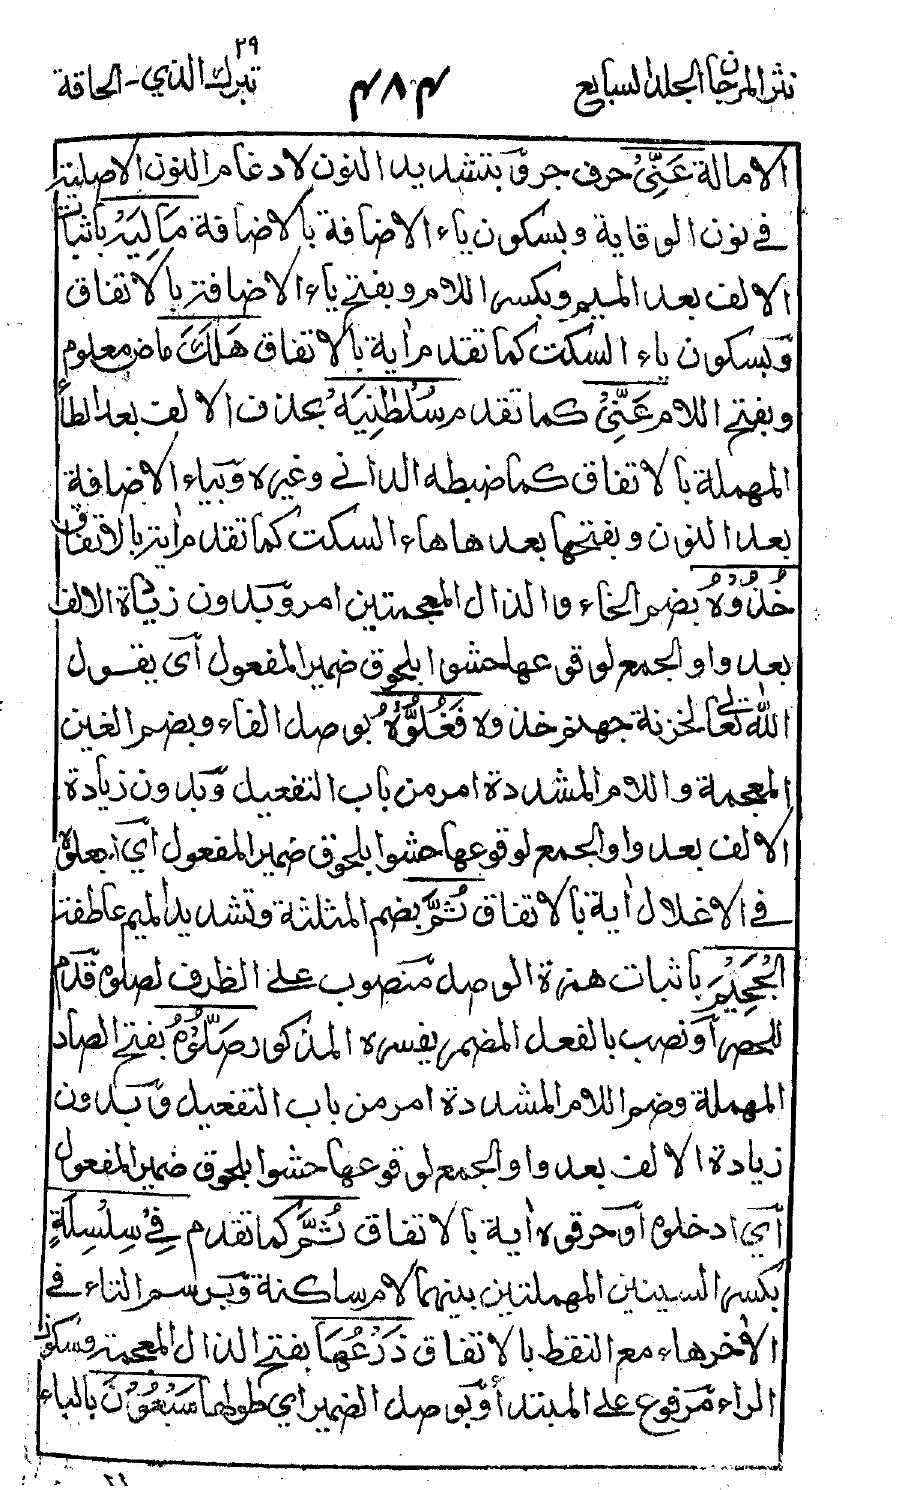 نثر المرجان المجلد السابع
٤٨٤
تبرك الذي ٢٩ - الحاقة
الامالة عَنِّيْ حرف جر وَبتشديد النون لادغام النون الاصلية
في نون الوقاية وبسكون ياء الاضافة بالاضافة مَالِيَهْ باثبات
الالف بعد الميم وبكسر اللام وبفتح ياء الاضافة بالاتفاق
وَبسكون هاء السكت كما تقدم اٰية بالاتفاق هَلَكَ ماض معلوم
وبفتح اللام عَنِّيْ كما تقدم سُلْطٰنِيَهْ بحذف الالف بعد الطاء
المهملة بالاتفاق كما ضبطه الداني وغيره وَبياء الاضافة
بعد النون وبفتحها بعدها هاء السكت كما تقدم اٰية بالاتفاق
خُذُوْهُ بضم الخاء والذال المعجمتين امر وَبدون زيادة الالف
بعد واو الجمع لوقوعها حشوا بلحوق ضمير المفعول آي يقول
الله تعالى لخزنة جهنم خذوه فَغُلُّوْهُ بوصل الفاء وبضم الغين
المعجمة واللام المشددة امر من باب التفعيل وَبدون زيادة
الالف بعد واو الجمع لوقوعها حشوا بلحوق ضمير المفعول آي اجعلوه
في الاغلال اٰية بالاتفاق ثُمَّ بضم المثلثة وتشديد الميم عاطفة
الْجَحِيْمَ باثبات همزة الوصل مَنصوب على الظرف لصلوه قدم
للحصر آو نصب بالفعل المضمر يفسره المذكور صَلُّوْهُ بفتح الصاد
المهملة وضم اللام المشددة امر من باب التفعيل وَبدون
زيادة الالف بعد واو الجمع لوقوعها حشوا بلحوق ضمير المفعول
آي ادخلوه آو حرقوه اٰية بالاتفاق ثُمَّ كما تقدم فِيْ سِلْسِلَةٍ
بكسر السينين المهملتين بينهما لام ساكنة وَبرسم التاء في
الاٰخر هاء مع النقط بالاتفاق ذَرْعُهَا بفتح الذال المعجمة وسكون
الراء مَرفوع على المبتدأ وَبوصل الضمير اي طولها سَبْعُوْنَ بالباء